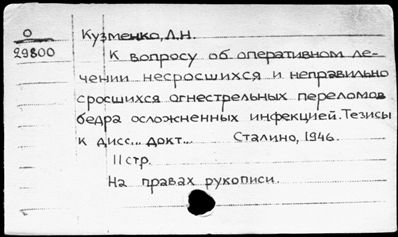 О
29800
Кузменко, Л.Н.
К вопросу об оперативном ле-
чении несросшихся и неправильно
сросшихся огнестрельных переломов
бедра осложненных инфекцией. Тезисы
к дисс... докт... Сталино, 1946.
11 стр.
На правах рукописи.